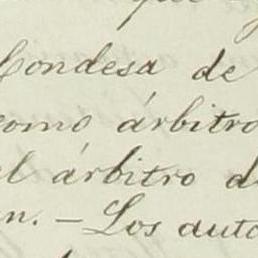 Condesa de
como árbitro
el árbitro d
n. — Los auto